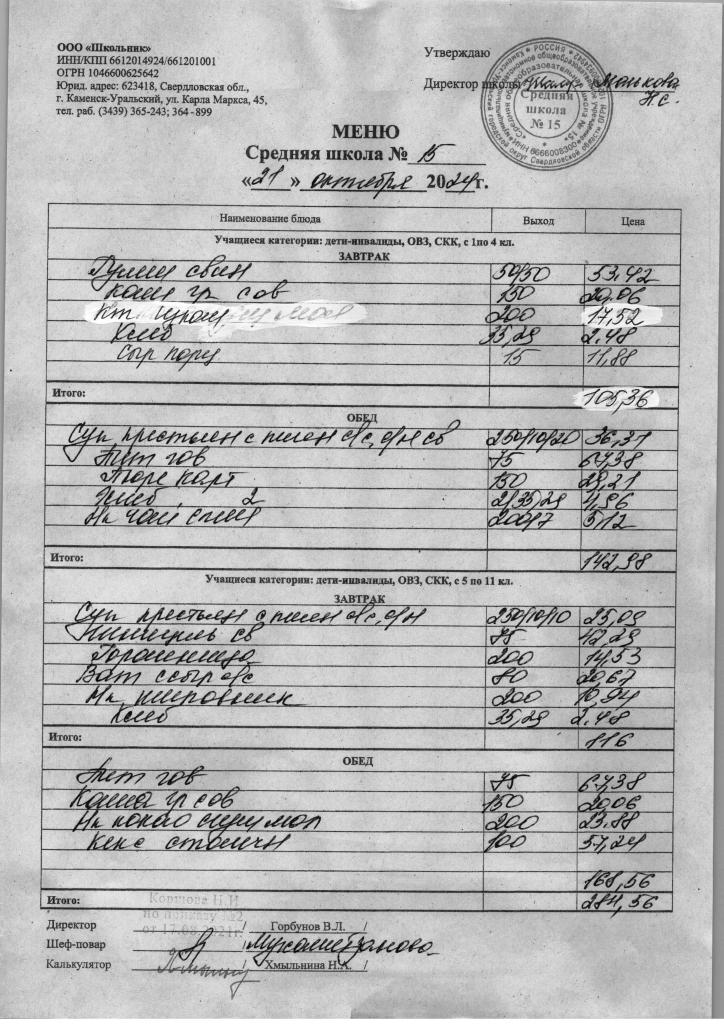 ООО «Школьник»
ИНН/КПП 6612014924/661201001
ОГРН 1046600625642
Юрид. адрес: 623418, Свердловская обл.,
г. Каменск-Уральский, ул. Карла Маркса, 45,
тел. раб. (3439) 365-243; 364-899
Утверждаю
Директор школы Манькова
Н.С.
Средняя
школа
№ 15
МЕНЮ
Средняя школа № 15
«21» октября 2024 г.
Наименование блюда Выход Цена
Учащиеся категории: дети-инвалиды, ОВЗ, СКК, с 1по 4 кл.
ЗАВТРАК
Гуляш свин 50/50 53.42
Каша гр сов 150 20.06
200 17,52
Хлеб 35,29 2.48
Сыр порц 15 11,88
Итого: 105,36
ОБЕД
Суп крестьян с пшен в/с, с/м св 250/10/20 36,31
гов 75 67,38
Пюре карт 150 29,21
Хлеб 2 2/35,29 4,96
Нк чай слив 200/7 5,12
Итого: 142,98
Учащиеся категории: дети-инвалиды, ОВЗ, СКК, с 5 по 11 кл.
ЗАВТРАК
Суп крестьян с пшен в/с, с/м 250/10/10 25,09
Шницель св 75 42,29
200 14,53
Ват с сыр в/с 80 20,67
Нк шиповник 200 10,94
Хлеб 35,29 2.48
Итого: 116
ОБЕД
гов 75 67,38
Каша гр сов 150 20,06
Нк какао мол 200 23.88
Кекс столичн 100 57,24
168,56
Итого: 284,56
по приказу №2
Директор / Горбунов В.Л. /
Шеф-повар / Мухаметзянова
Калькулятор / Хмыльнина Н.А. /